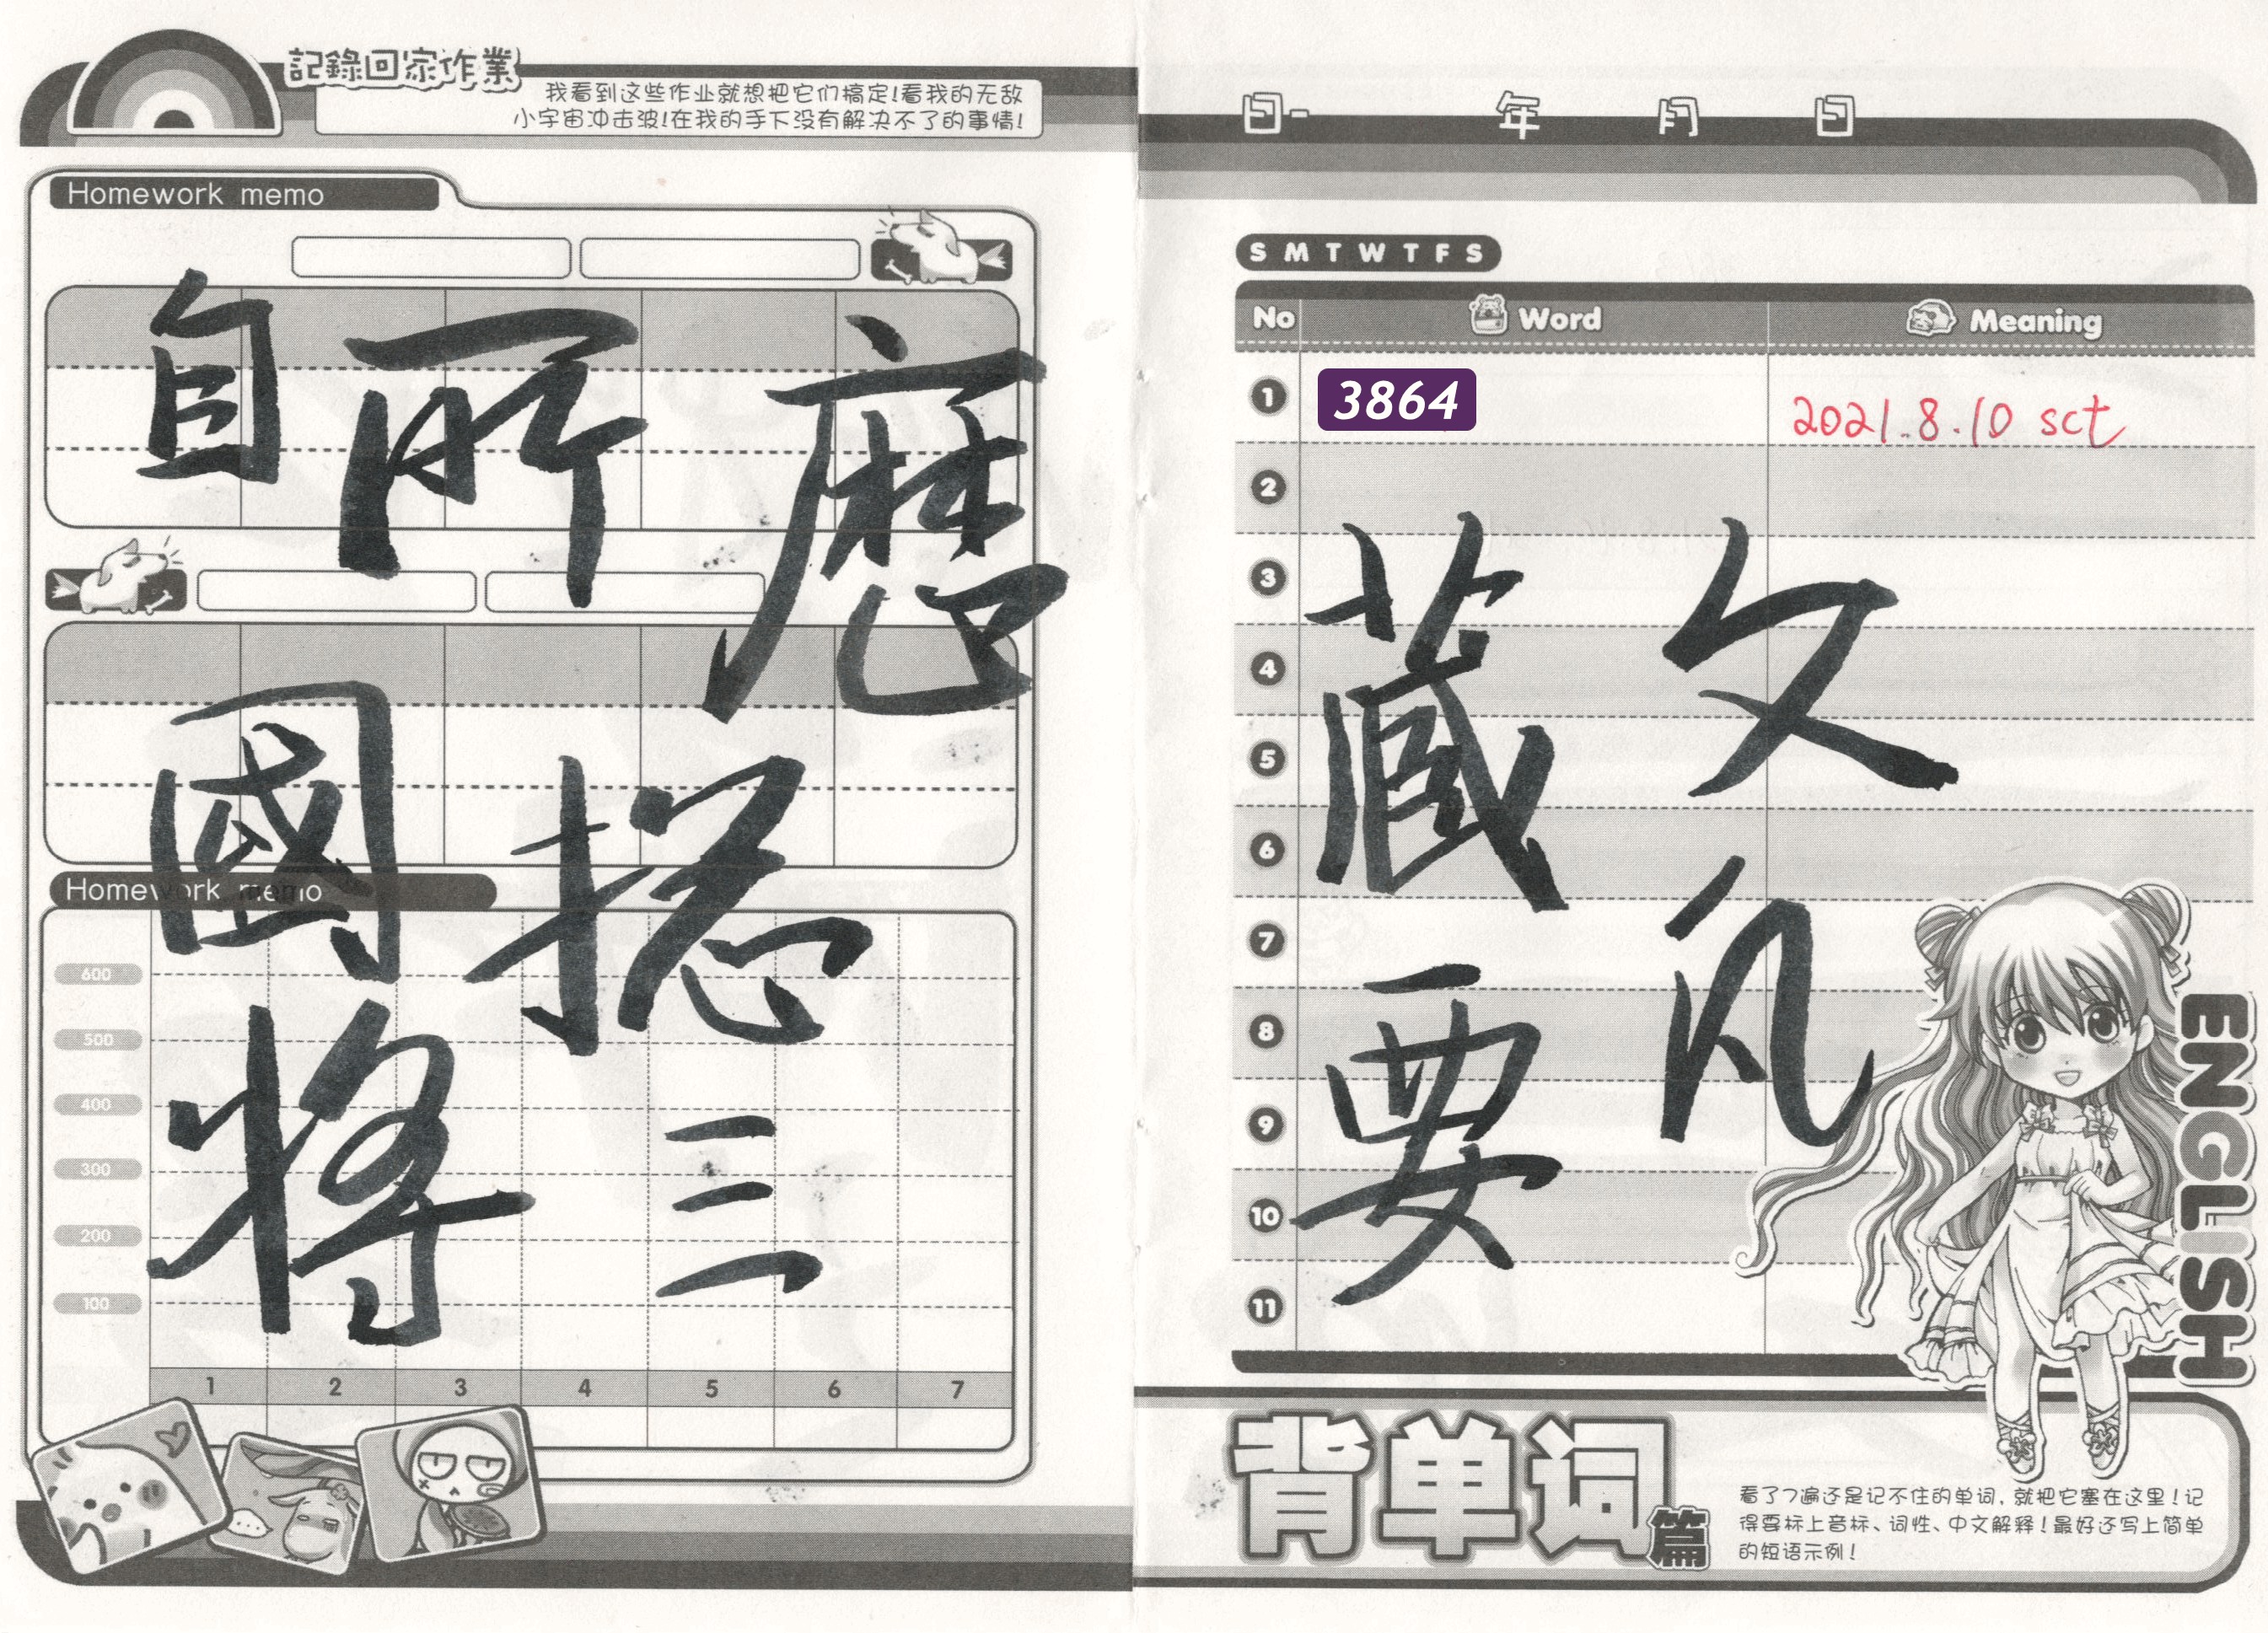 記錄回家作業
我看到这些作业就想把它们搞定!看我的无敌
小宇宙冲击波!在我的手下没有解决不了的事情!
Homework memo
自所
國總
將三
Homework memo
600
500
400
300
200
100
1 2 3 4 5 6 7
日- 年 月 日
S M T W T F S
No Word Meaning
1 3864 2021.8.10 sct
2
3
4
5
6
7
8
9
10
11
藏文
要凡
ENGLISH
背单词篇
看了7遍还是记不住的单词,就把它塞在这里!记
得要标上音标、词性、中文解释!最好还写上简单
的短语示例!